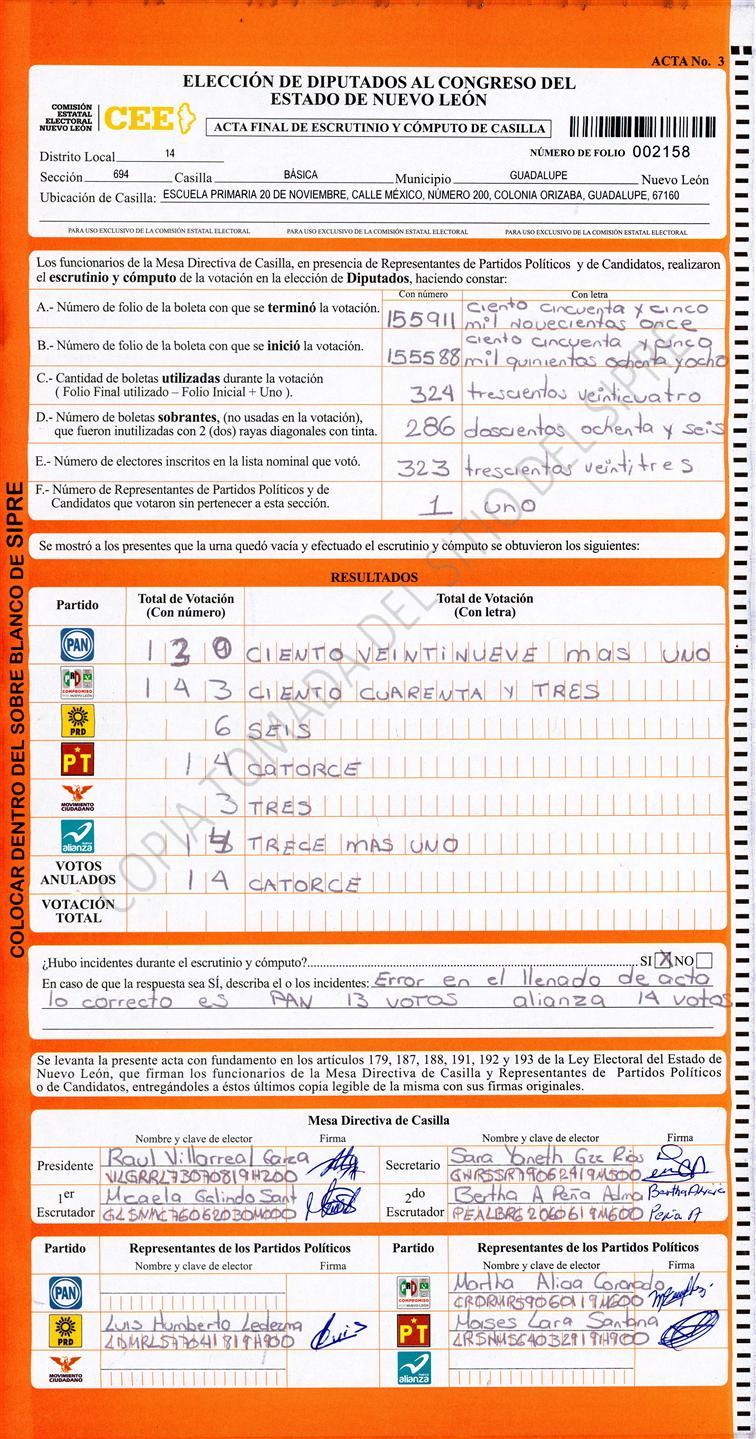 ACTA No. 3
ELECCIÓN DE DIPUTADOS AL CONGRESO DEL
ESTADO DE NUEVO LEÓN
COMISIÓN
ESTATAL
ELECTORAL
NUEVO LEÓN
CEE
ACTA FINAL DE ESCRUTINIO Y CÓMPUTO DE CASILLA
Distrito Local 14
NÚMERO DE FOLIO 002158
Sección 694 Casilla BÁSICA Municipio GUADALUPE Nuevo León
Ubicación de Casilla: ESCUELA PRIMARIA 20 DE NOVIEMBRE, CALLE MÉXICO, NÚMERO 200, COLONIA ORIZABA, GUADALUPE, 67160
PARA USO EXCLUSIVO DE LA COMISIÓN ESTATAL ELECTORAL PARA USO EXCLUSIVO DE LA COMISIÓN ESTATAL ELECTORAL PARA USO EXCLUSIVO DE LA COMISIÓN ESTATAL ELECTORAL
Los funcionarios de la Mesa Directiva de Casilla, en presencia de Representantes de Partidos Políticos y de Candidatos, realizaron
el escrutinio y cómputo de la votación en la elección de Diputados, haciendo constar:
Con número Con letra
A.- Número de folio de la boleta con que se terminó la votación. 155911 ciento cincuenta y cinco
mil novecientos once
B.- Número de folio de la boleta con que se inició la votación. 155588 ciento cincuenta y cinco
mil quinientos ochenta y ocho
C.- Cantidad de boletas utilizadas durante la votación
( Folio Final utilizado – Folio Inicial + Uno ). 324 trescientos veinticuatro
D.- Número de boletas sobrantes, (no usadas en la votación),
que fueron inutilizadas con 2 (dos) rayas diagonales con tinta. 286 doscientos ochenta y seis
E.- Número de electores inscritos en la lista nominal que votó. 323 trescientos veintitres
F.- Número de Representantes de Partidos Políticos y de
Candidatos que votaron sin pertenecer a esta sección. 1 uno
Se mostró a los presentes que la urna quedó vacía y efectuado el escrutinio y cómputo se obtuvieron los siguientes:
RESULTADOS
Partido Total de Votación Total de Votación
(Con número) (Con letra)
PAN 130 CIENTO VEINTINUEVE mas UNO
PRD COMPROMISO 143 CIENTO CUARENTA Y TRES
PRD 6 SEIS
PT 14 CATORCE
MOVIMIENTO CIUDADANO 3 TRES
alianza 14 TRECE MAS UNO
VOTOS
ANULADOS 14 CATORCE
VOTACIÓN
TOTAL
¿Hubo incidentes durante el escrutinio y cómputo? SI X NO
En caso de que la respuesta sea SÍ, describa el o los incidentes: Error en el llenado de acta
lo correcto es PAN 13 votos alianza 14 votos
Se levanta la presente acta con fundamento en los artículos 179, 187, 188, 191, 192 y 193 de la Ley Electoral del Estado de
Nuevo León, que firman los funcionarios de la Mesa Directiva de Casilla y Representantes de Partidos Políticos
o de Candidatos, entregándoles a éstos últimos copia legible de la misma con sus firmas originales.
Mesa Directiva de Casilla
Nombre y clave de elector Firma Nombre y clave de elector Firma
Presidente Raul Villarreal Garza
VLGRRL73070819H200
Secretario Sara Yaneth Gzz Rios
GNRSSR79062919M500
1er
Escrutador Micaela Galindo Sant
GLSNMC76062030M000
2do
Escrutador Bertha A Peña
Partido Representantes de los Partidos Políticos Partido Representantes de los Partidos Políticos
Nombre y clave de elector Firma Nombre y clave de elector Firma
PAN
COMPROMISO Martha Alicia Coronado
CRDRMR59060119M600
PRD Luis Humberto Ledezma
LDMRLS77041819H900
PT Moises Lara Santana
LRSNMS64032919H900
MOVIMIENTO CIUDADANO
alianza
COLOCAR DENTRO DEL SOBRE BLANCO DE SIPRE
COPIA TOMADA DEL SITIO DEL SIPRE